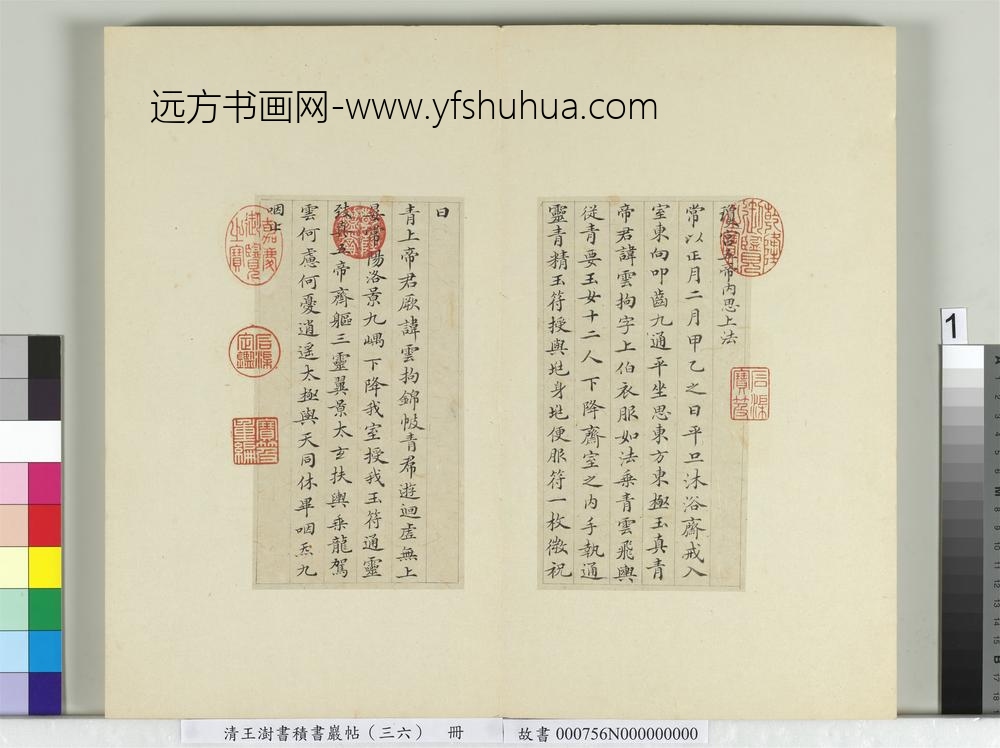 远方书画网-www.yfshuhua.com
瓊宮五帝內思上法
常以正月二月甲乙之日平旦沐浴齋戒入
室東向叩齒九通平坐思東方東極玉真青
帝君諱雲拘字上伯衣服如法乘青雲飛輿
從青要玉女十二人下降齋室之內手執通
靈青精玉符授與兆身兆便服符一枚微祝
曰
青上帝君厥諱雲拘錦帔青帬遊迴虛無上
晏常陽洛景九嵎下降我室授我玉符通靈
致真五帝齊軀三靈翼景太玄扶輿乘龍駕
雲何慮何憂逍遙太極與天同休畢咽炁九
咽止
石渠寶笈
嘉慶御覽之寶
石渠定鑑
寶笈重編
1
清王澍書積書巖帖（三六） 冊
故書 000756N000000000